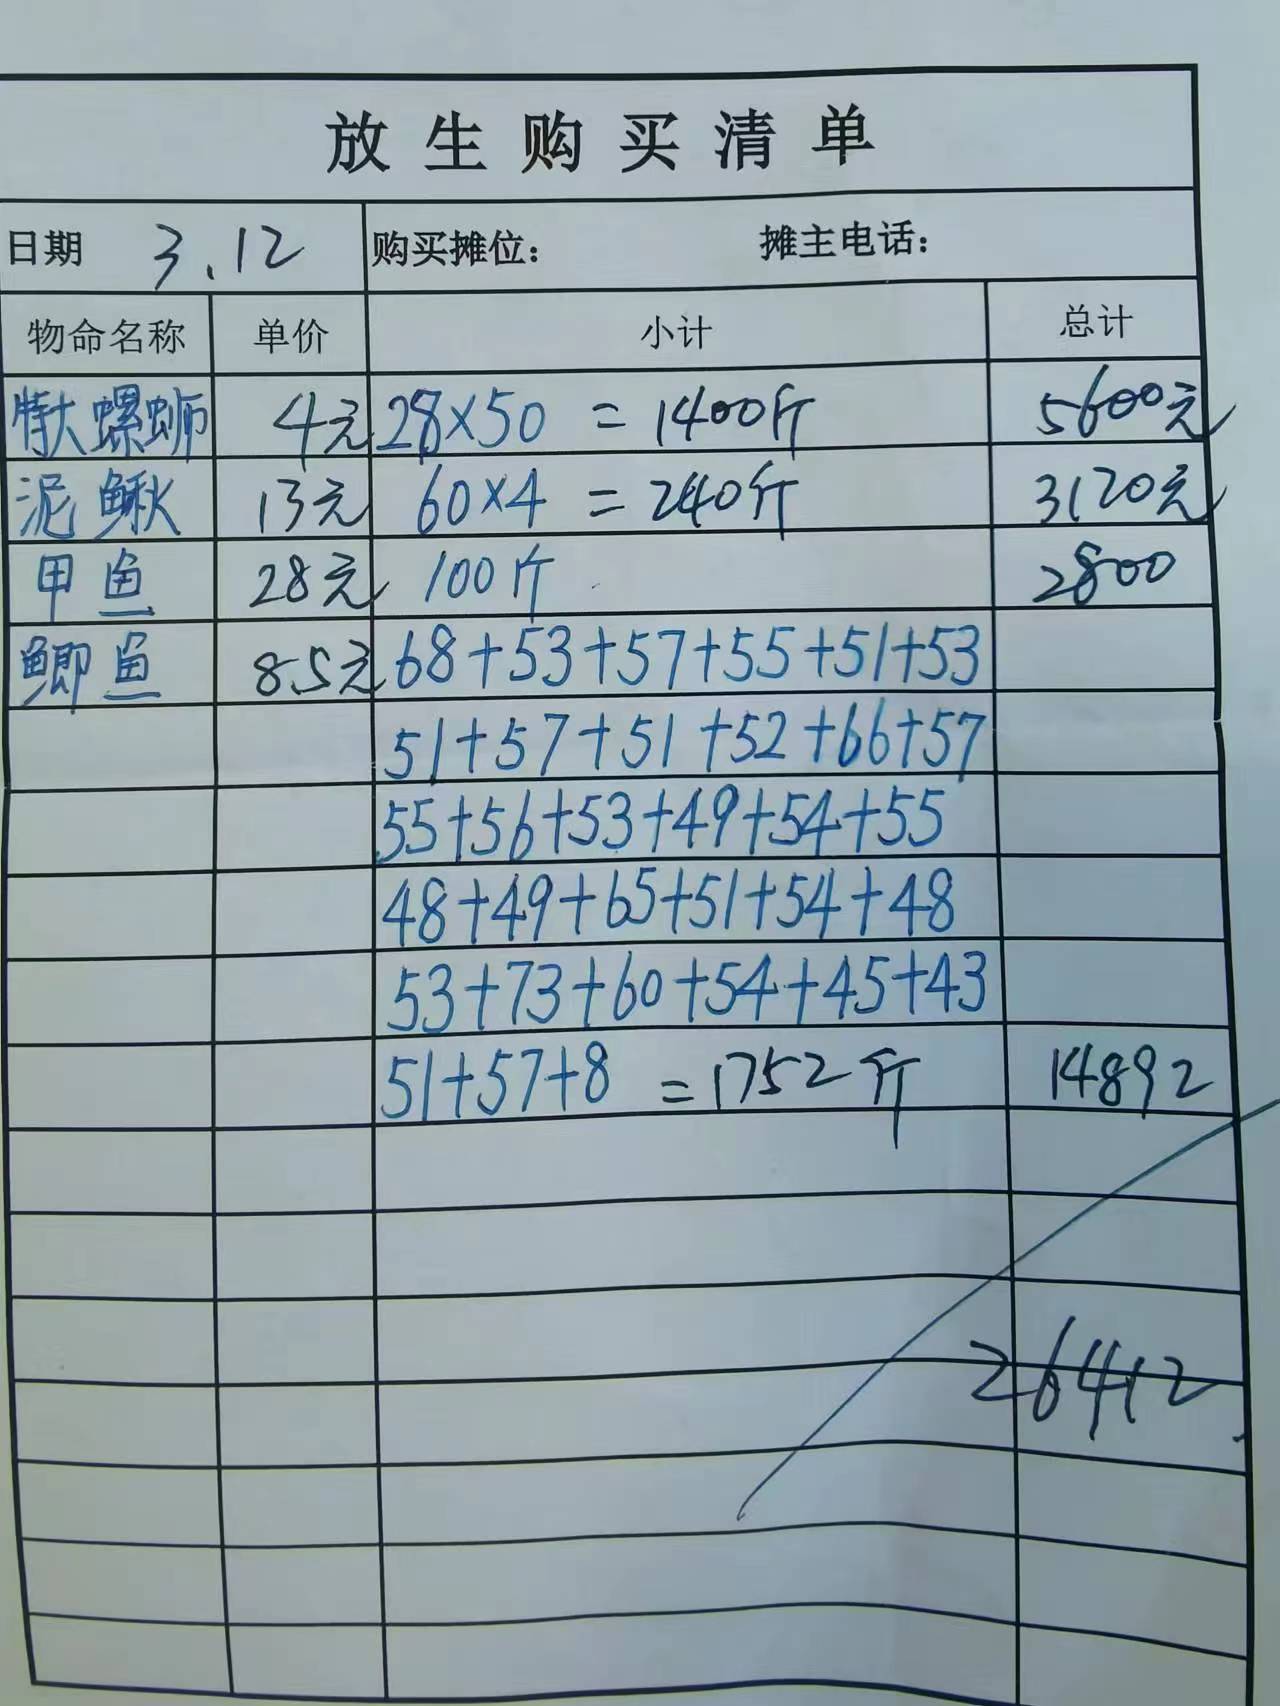 放生购买清单
日期 3.12 购买摊位： 摊主电话：
物命名称 单价 小计 总计
特大螺蛳 4元 28×50 = 1400斤 5600元
泥鳅 13元 60×4 = 240斤 3120元
甲鱼 28元 100斤 2800
鲫鱼 8.5元 68+53+57+55+51+53
51+57+51+52+66+57
55+56+53+49+54+55
48+49+65+51+54+48
53+73+60+54+45+43
51+57+8 =1752斤 14892
26412